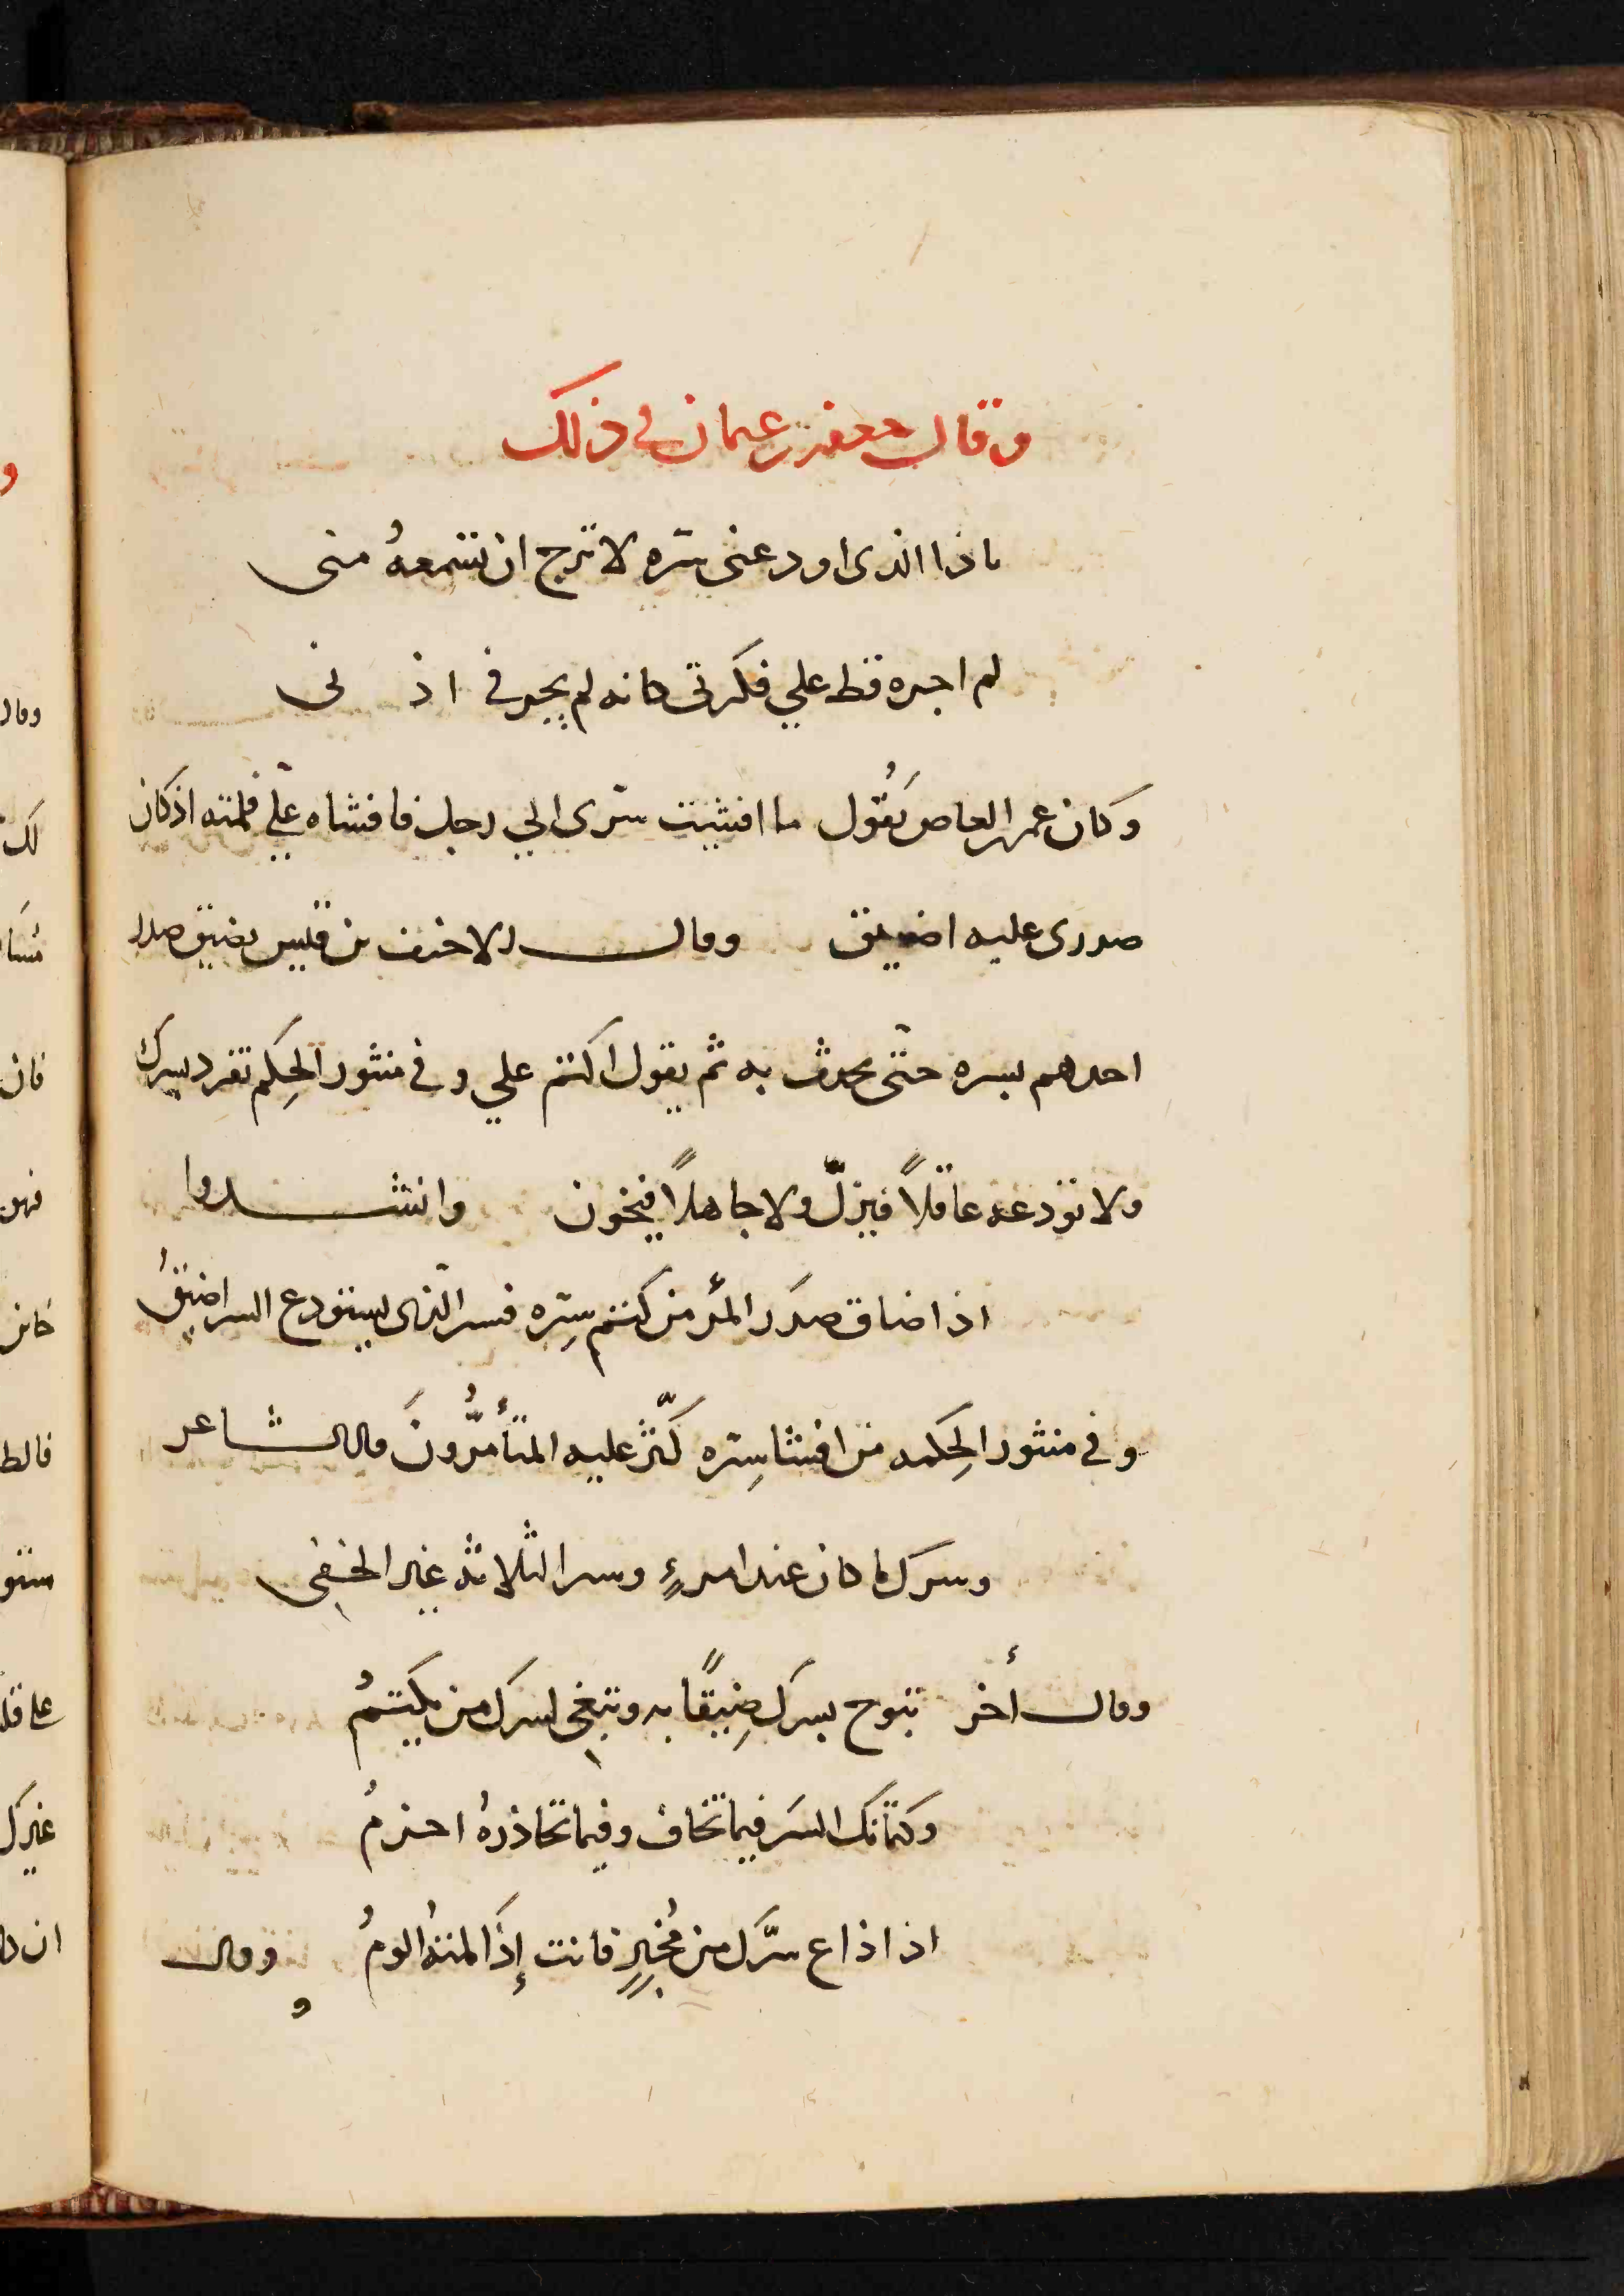 وقال جعفر بن عثمان في ذلك
ياذا الذى اودعنى سّره لا ترج ان تسمعهُ منى
لم اجره قط علي فكرتى كانه لم يجر في اذنى
وكان عمر والعاص يَقُول ما افشيت سّرى الي رجل فافشاه علّي فلمته اذ كان
صدرى عليه اضيق وقال الاحنف بن قيس يضيق صدر
احدهم بسره حتّى يحدث به ثم يقول اكتم علي وفي منثور الحِكم تفرد بسرك
ولا تودعه عاقلاً فيزلّ ولا جاهلاً فيخون وانشدوا
اذا ضاق صدَر المرُ من كتم سِرّه فسر الّذى يستودع السر اضيقُ
وفي منثور الحِكمه من افشا سِرّه كَثّر عليه المتأمُّرونَ قال الشاعر
وسرك ما كان عند امرءٍ وسر الثلاثه غير الخفى
وقال أخر تبوح بسرك ضِيقًا به وتبغى لسرك من يكتمُ
وكتمانك السَر فيما تخاف وفيما تحاذرهُ احزمُ
اذا ذاع سّرك من مُخبرٍ فانت إذَا لمتهُ الومُ وقال